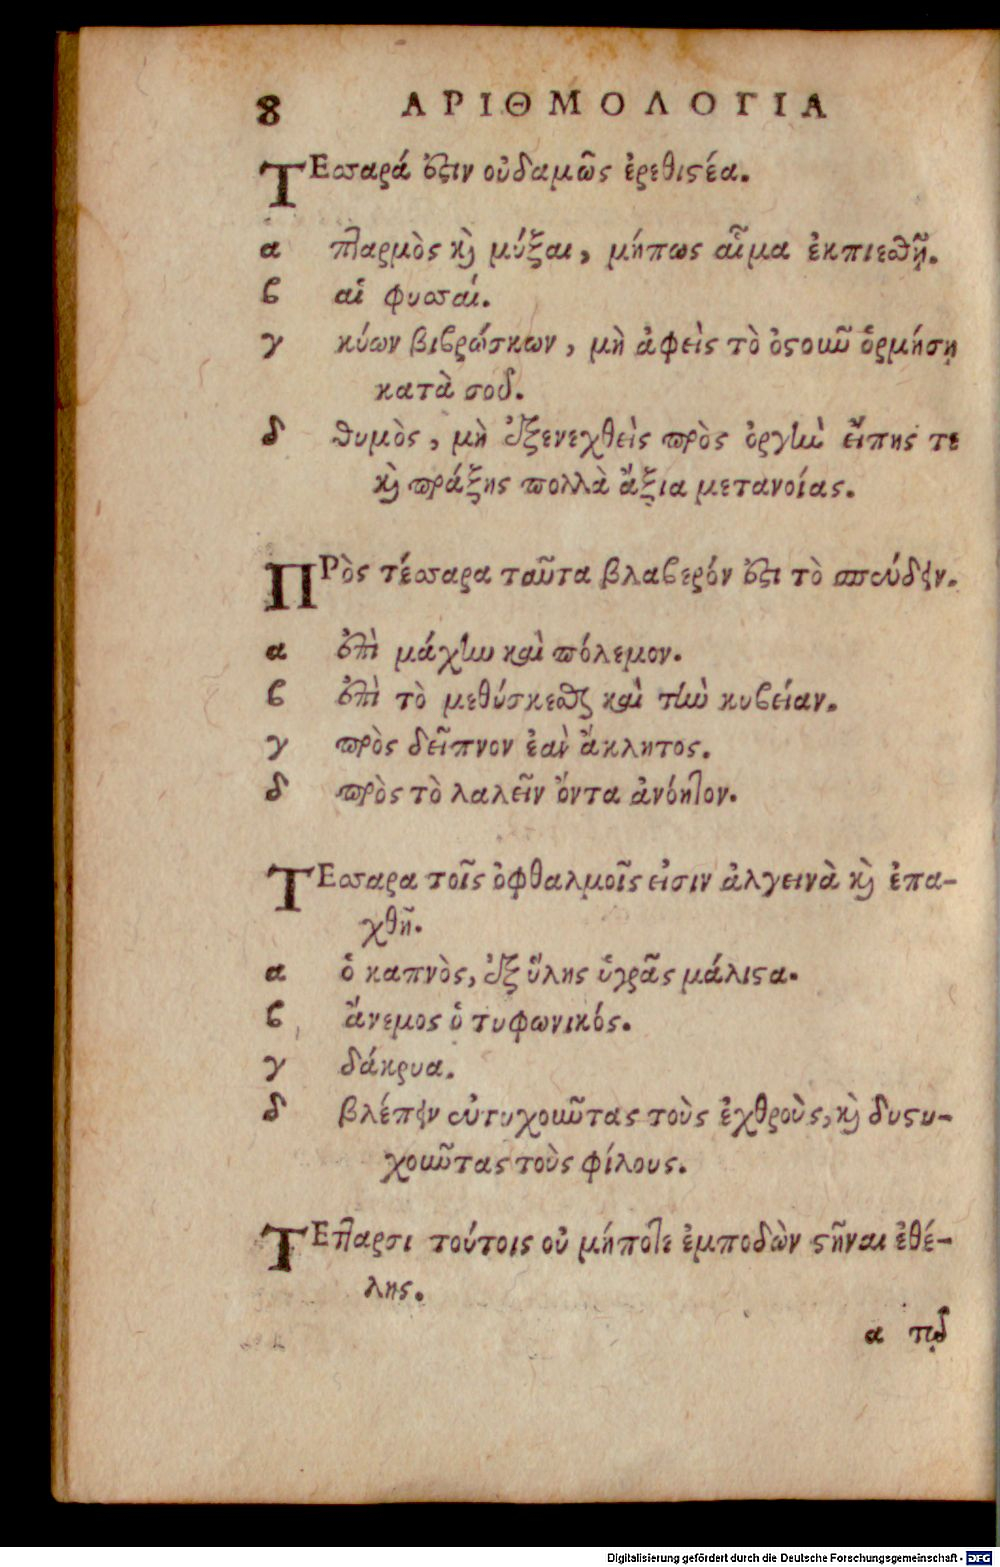 8 ΑΡΙΘΜΟΛΟΓΙΑ
ΤΕσσαρά ἐστιν οὐδαμῶς ἐρεθιστέα.
α πταρμὸς καὶ μύξαι, μήπως αἷμα ἐκπιεσθῇ.
β αἱ φυσσαί.
γ κύων βιβρώσκων, μὴ ἀφεὶς τὸ ὀστοῦν ὁρμήσῃ
κατὰ σοῦ.
δ θυμὸς, μὴ ἐξενεχθεὶς πρὸς ὀργὴν εἴπῃς τε
καὶ πράξῃς πολλὰ ἄξια μετανοίας.
ΠΡὸς τέσσαρα ταῦτα βλαβερόν ἐστι τὸ σπεύδειν.
α ἐπὶ μάχην καὶ πόλεμον.
β ἐπὶ τὸ μεθύσκεσθαι καὶ τὴν κυβείαν.
γ πρὸς δεῖπνον ἐὰν ἄκλητος.
δ πρὸς τὸ λαλεῖν ὄντα ἀνόητον.
ΤΕσσαρα τοῖς ὀφθαλμοῖς εἰσιν ἀλγεινὰ καὶ ἐπα-
χθῆ.
α ὁ καπνὸς, ἐξ ὕλης ὑγρᾶς μάλιστα.
β ἄνεμος ὁ τυφωνικός.
γ δάκρυα.
δ βλέπειν εὐτυχοῦντας τοὺς ἐχθροὺς, καὶ δυστυ-
χοῦντας τοὺς φίλους.
ΤΕτταρσι τούτοις οὐ μήποτε ἐμποδὼν στῆναι ἐθέ-
λῃς.
α τῷ
Digitalisierung gefördert durch die Deutsche Forschungsgemeinschaft - DFG